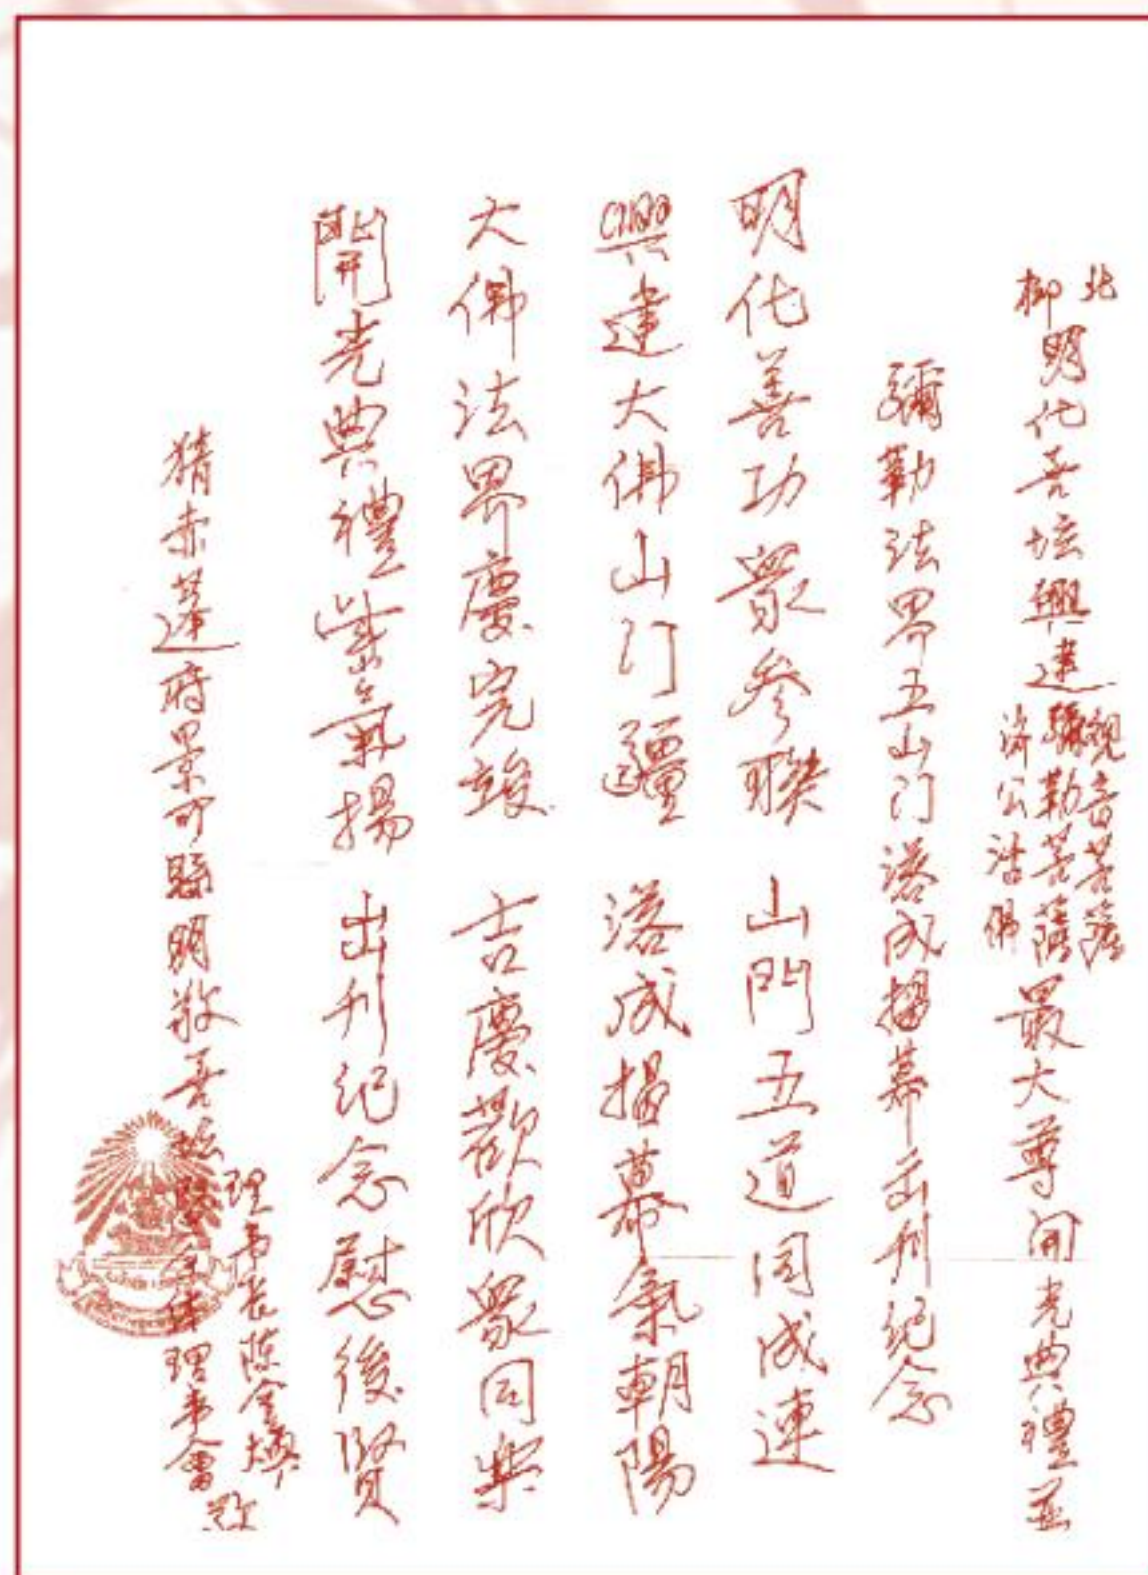 北柳明化善坛興建觀音菩薩彌勒菩薩濟公活佛最大尊開光典禮並
彌勒法界五山门落成揭幕出刊紀念
明化善功眾參聯 山門五道同成連
興建大佛山门疆 落成揭幕氣朝陽
大佛法界慶完竣 吉慶歡欣眾同樂
開光典禮紫氣揚 出刋紀念慰後賢
猜赤蓬府景可縣明敬善坛
理事長陈金
暨全体理事會
敬